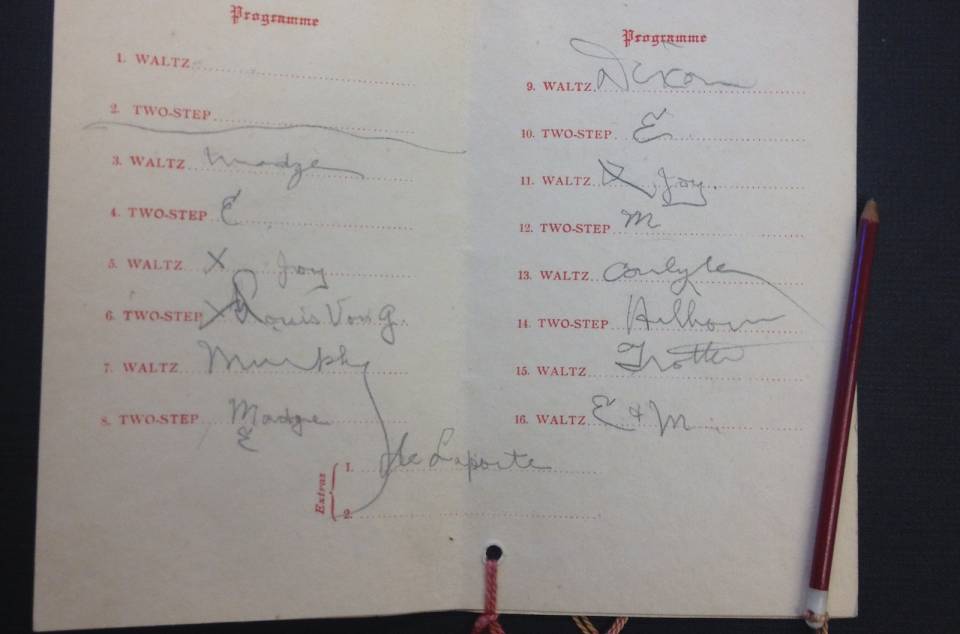 Programme
1. WALTZ
2. TWO-STEP
3. WALTZ Madge
4. TWO-STEP E
5. WALTZ X Joy
6. TWO-STEP X Louis Von G.
7. WALTZ Murphy
8. TWO-STEP Madge
E
Programme
9. WALTZ Dixon
10. TWO-STEP E
11. WALTZ X Joy.
12. TWO-STEP M
13. WALTZ Carlyle
14. TWO-STEP
15. WALTZ Trotter
16. WALTZ E & M
Extras
1. de Laporte
2.